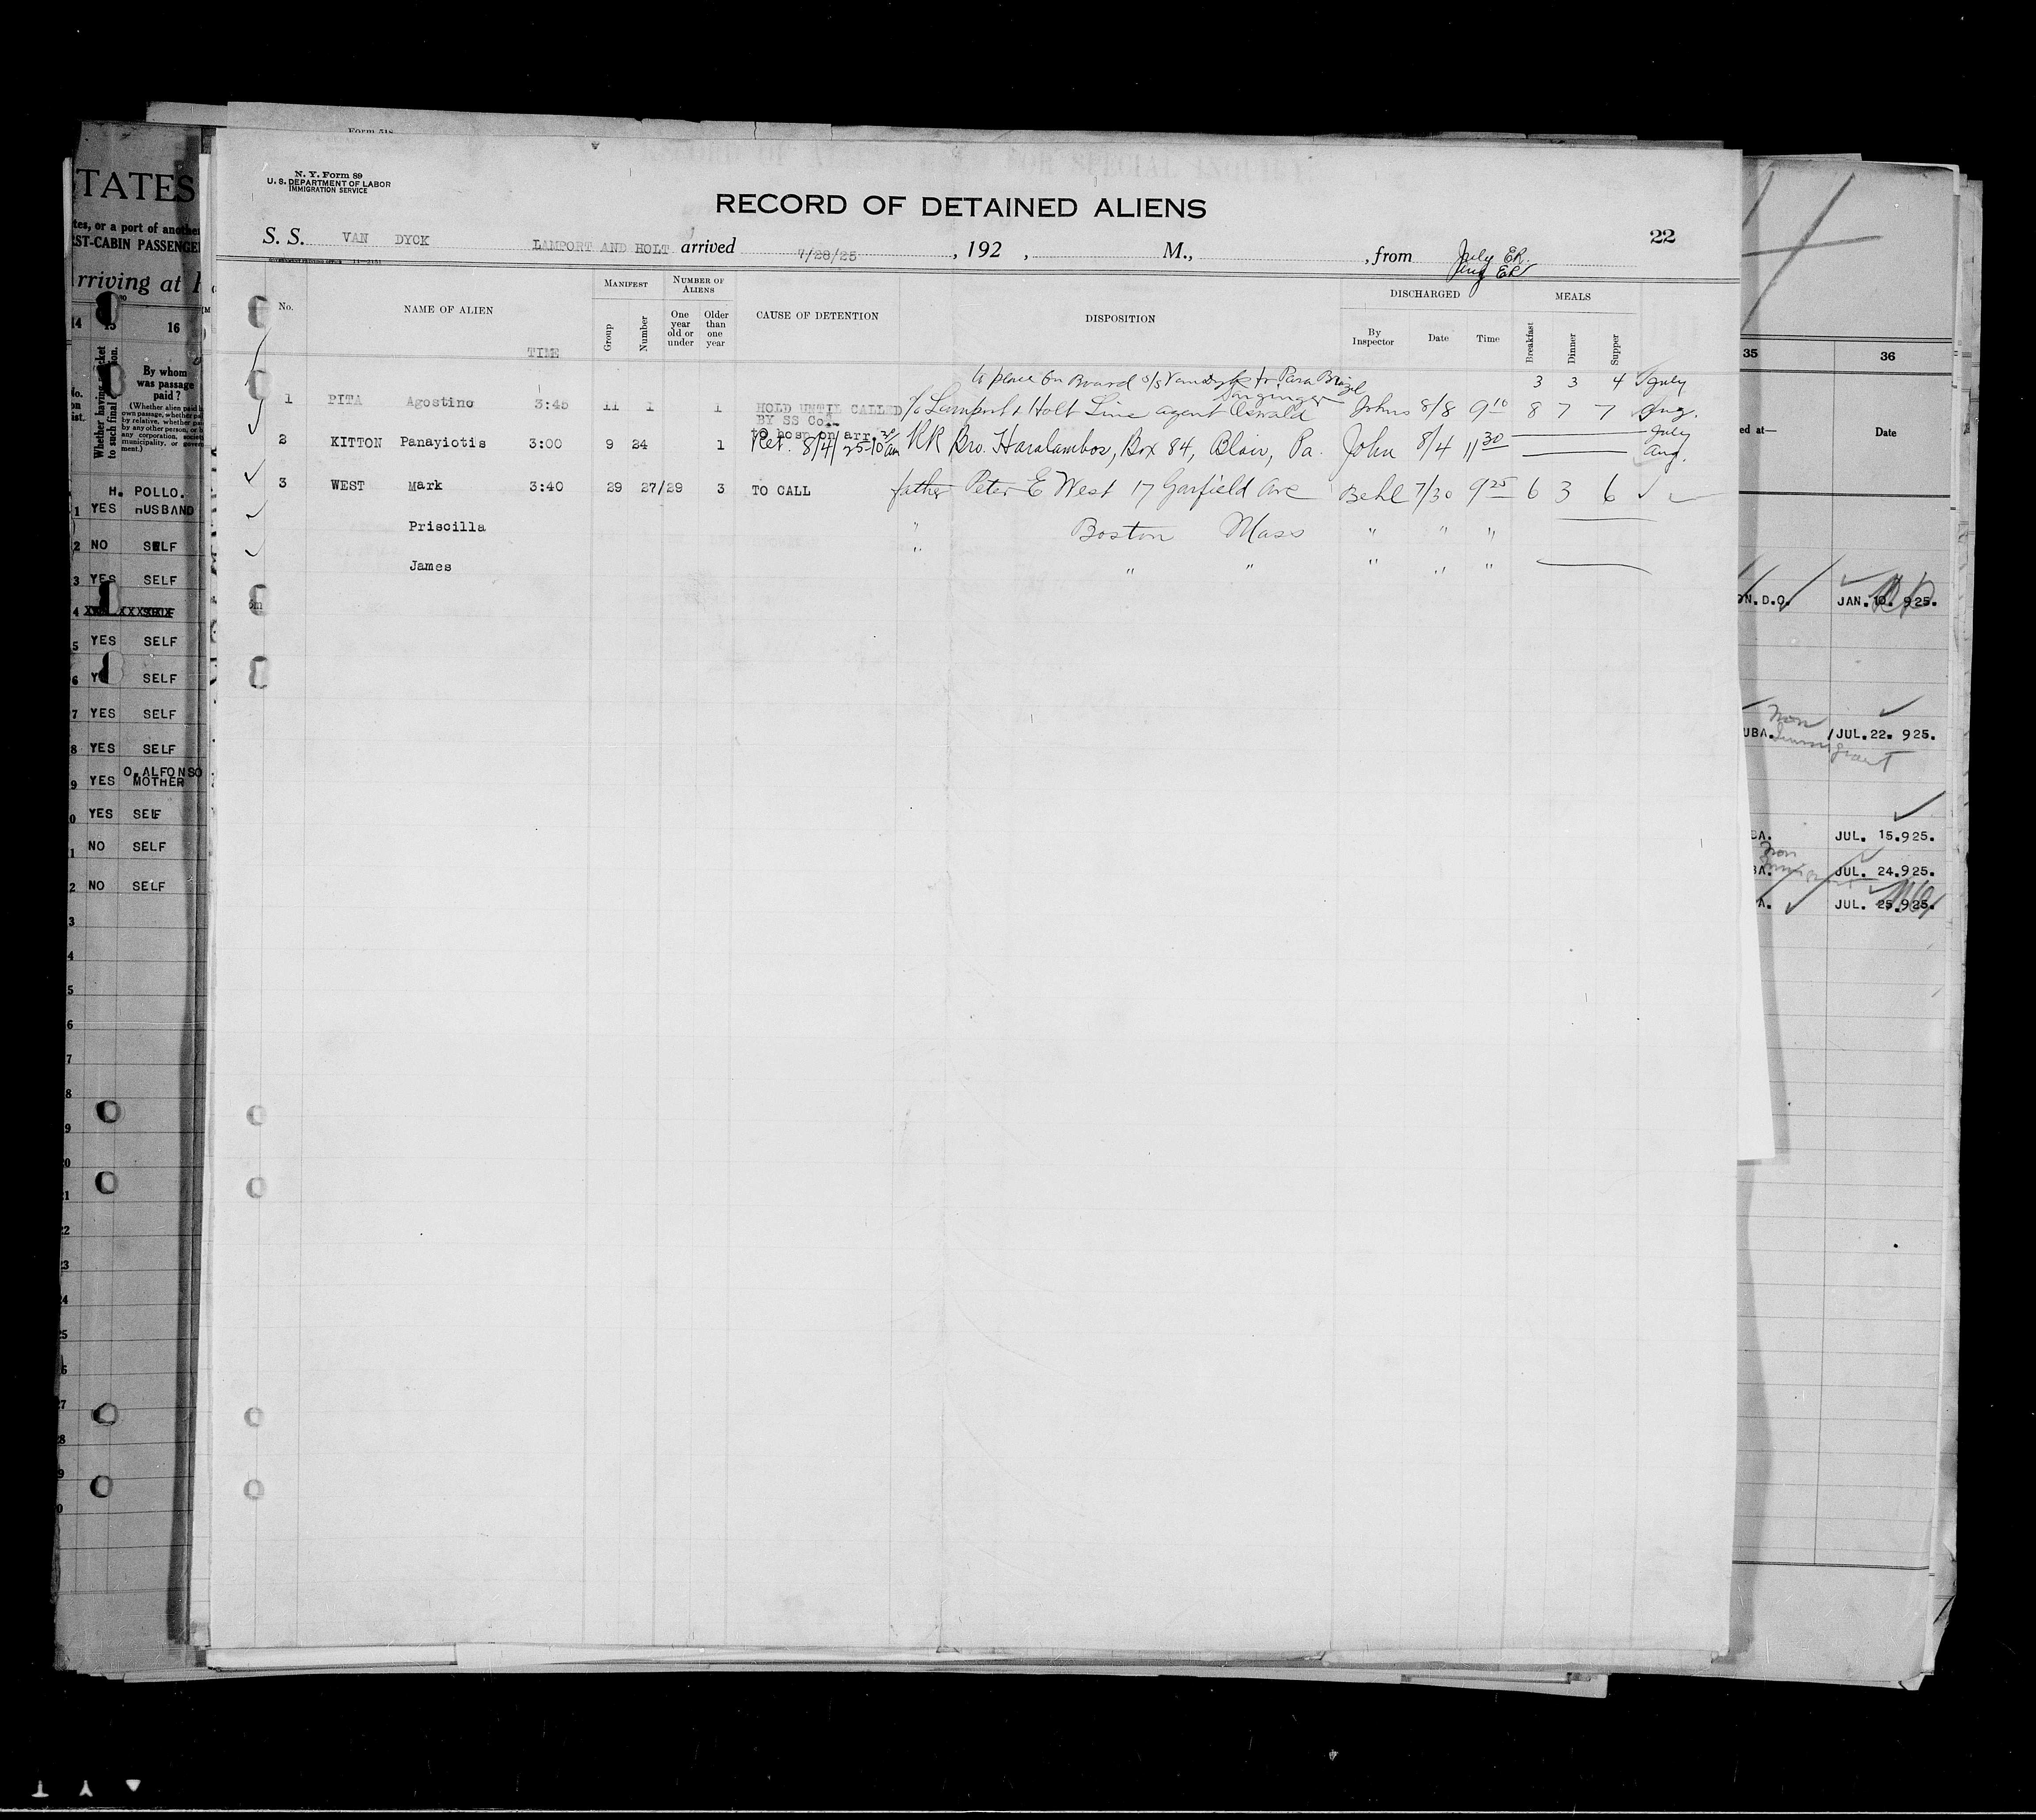 Form 518
N. Y. Form 89
U. S. DEPARTMENT OF LABOR
IMMIGRATION SERVICE
RECORD OF DETAINED ALIENS
22
S. S. VAN DYCK LAMPORT AND HOLT arrived 7/28/25, 192 , M., , from July ER.
Aug ER
No.
NAME OF ALIEN
TIME
MANIFEST
Group
Number
NUMBER OF ALIENS
One year old or under
Older than one year
CAUSE OF DETENTION
DISPOSITION
DISCHARGED
By Inspector
Date
Time
MEALS
Breakfast
Dinner
Supper
to place on Board s/s Vandyke for Para Brazil 3 3 4 July
1 PITA Agostino 3:45 11 1 1 HOLD UNTIL CALLED BY SS Co. % Lamport & Holt Line agent Oswald Johns 8/8 9 10 8 7 7 Aug.
to hosp on arr.
2 KITTON Panayiotis 3:00 9 24 1 Ret. 8/4/25 RR Bro. Haralambos, Box 84, Blair, Pa. John 8/4 11 30 July
Aug.
3 WEST Mark 3:40 29 27/29 3 TO CALL father Peter E West 17 Garfield Ave Behl 7/30 9 25 6 3 6
Priscilla " Boston Mass " " "
James " " " " " "
TATES
tes, or a port of another
ST-CABIN PASSENGE
rriving at
14
15
16
Whether having a ticket to such final
By whom was passage paid?
H. POLLO.
1 YES HUSBAND
2 NO SELF
3 YES SELF
4
5 YES SELF
6 SELF
7 YES SELF
8 YES SELF
O. ALFONSO
9 YES MOTHER
0 YES SELF
1 NO SELF
2 NO SELF
3
4
5
6
7
8
9
20
21
22
23
24
25
26
27
28
9
0
35
36
ed at—
Date
ON. D.O. JAN. 10. 925.
UBA. Non Immigrant JUL. 22. 925.
BA. JUL. 15.925.
BA. Non Immigrant JUL. 24.925.
A. JUL. 25.925.